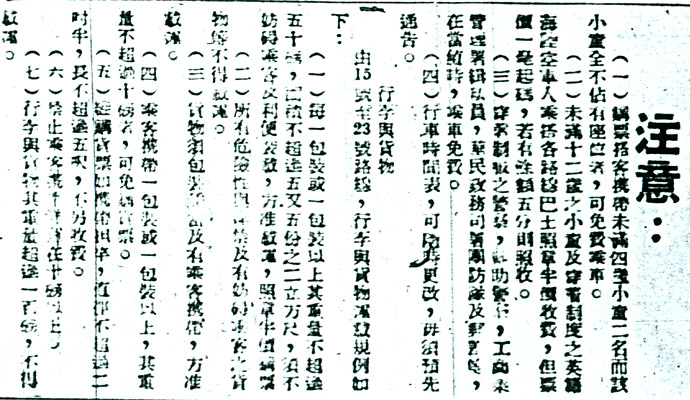 注意：
（一）購票搭客携帶未滿四歲小童二名而該
小童全不佔有座位者，可免費乘車。
（二）未滿十二歲之小童及穿着制度之英籍
海陸空軍人乘搭各路綫巴士照章半價收費，但票
價一毫起碼，若有餘額五分則照收。
（三）穿着制服之警察，輔助警察，工商業
管理署緝私員，華民政務司署團防隊及郵差等，
在當値時，乘車免費。
（四）行車時間表，可隨時更改，毋須預先
通告。
行李與貨物
由15號至23號路線，行李與貨物運載規例如
下：
（一）每一包裝或一包裝以上其重量不超過
五十磅，面積不超過五又五份之二立方尺，須不
妨碍乘客及利便裝載，方准載運，照章半價購票
（二）所有危險性與及有妨碍乘客之貨
物等不得載運。
（三）貨物須包裝及有乘客携帶，方准
載運。
（四）乘客携帶一包裝或一包裝以上，其重
量不超過十磅者，可免購貨票。
（五）購貨票如携帶，直徑不超過二
吋半，長不超過五呎，不另收費。
（六）禁止乘客携十磅以上。
（七）行李與貨物其重量超過一百磅，不得
載運。